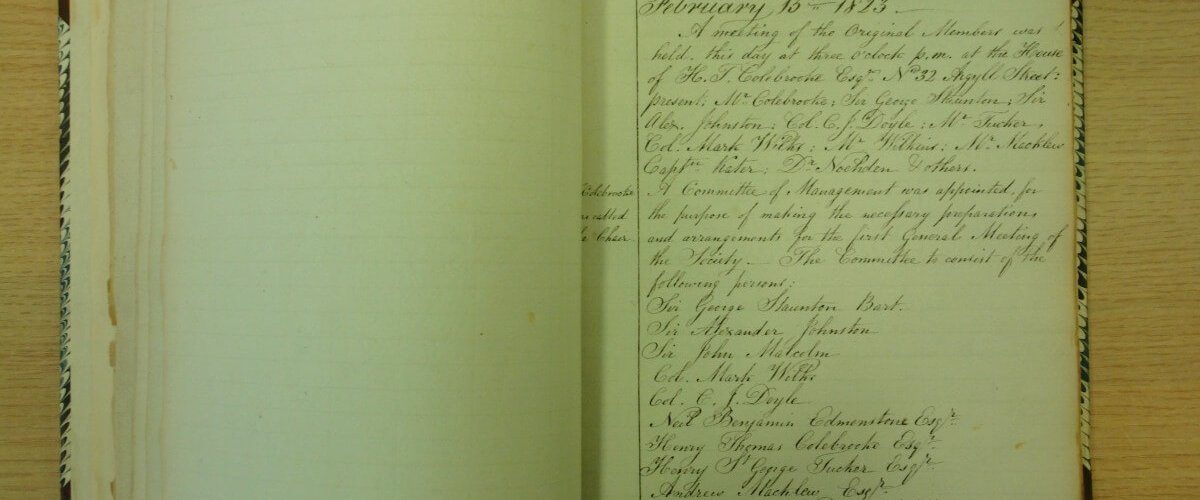 February 15th 1823 —
A meeting of the Original Members was
held, this day at three o'clock p.m. at the House
of H. T. Colebrooke Esqr. No 32 Argyll Street:
present; Mr Colebrooke; Sir George Staunton; Sir
Alexr. Johnston; Col. C. J. Doyle; Mr Tucker,
Col. Mark Wilks; Mr Wilkins; Mr Macklew
Captn Kater; Dr Noehden & others.
Colebrooke
called
Chair
A Committee of Management was appointed for
the purpose of making the necessary preparations
and arrangements for the first General Meeting of
the Society — The Committee to consist of the
following persons:
Sir George Staunton Bart.
Sir Alexander Johnston
Sir John Malcolm
Col. Mark Wilks
Col. C. J. Doyle
Neil Benjamin Edmonstone Esqr.
Henry Thomas Colebrooke Esqr.
Henry St George Tucker Esqr.
Andrew Macklew Esqr.